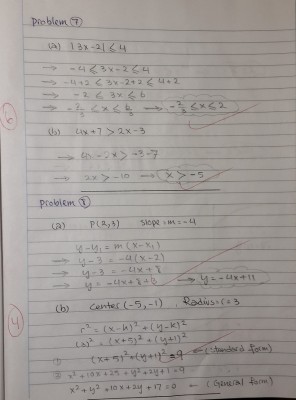 problem ⑦
(a) |3x-2| ≤ 4
→ -4 ≤ 3x-2 ≤ 4
→ -4+2 ≤ 3x-2+2 ≤ 4+2
→ -2 ≤ 3x ≤ 6
→ -2/3 ≤ x ≤ 6/3 → -2/3 ≤ x ≤ 2
6
(b) 4x+7 > 2x-3
→ 4x-2x > -3-7
→ 2x > -10 → x > -5
problem ⑧
(a) P(2,3) slope=m=-4
y-y₁ = m(x-x₁)
→ y-3 = -4(x-2)
→ y-3 = -4x+8
→ y = -4x+8+3 → y = -4x+11
(b) center(-5,-1), Radius=r=3
4
r² = (x-h)²+(y-k)²
(3)² = (x+5)²+(y+1)²
① (x+5)²+(y+1)²=9 ← (Standard form)
② x²+10x+25+y²+2y+1=9
x²+y²+10x+2y+17=0 ← (General form)